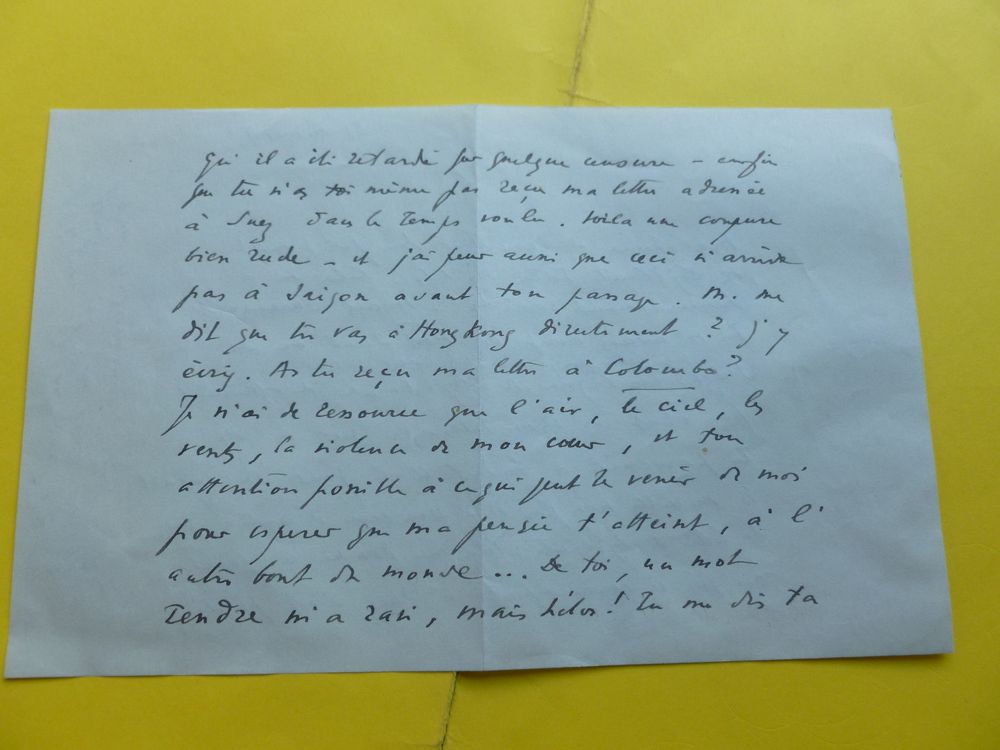 qu'il a été retardé par quelque censure – enfin
que tu n'as toi même pas reçu ma lettre adressée
à Suez dans le temps voulu. Voilà une coupure
bien rude – et j'ai peur aussi que ceci n'arrive
pas à Saïgon avant ton passage. M. me
dit que tu vas à Hong Kong directement ? j'y
écris. As tu reçu ma lettre à Colombo?
Je n'ai de ressource que l'air, le ciel, les
vents, la violence de mon cœur, et ton
attention possible à ce qui peut te venir de moi
pour espérer que ma pensée t'atteint, à l'
autre bout du monde... De toi, un mot
tendre m'a ravi, mais hélas! Tu me dis ta